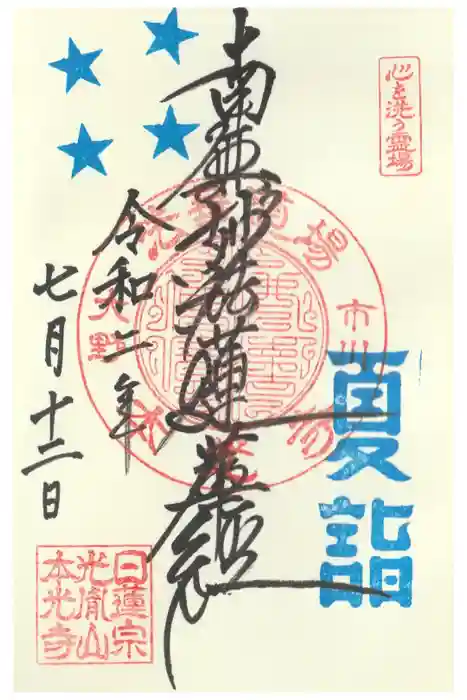 心を洗う霊場
夏詣
南無妙法蓮華経
市川
大野
道場
令和二年
七月十二日
日蓮宗
光胤山
本光寺